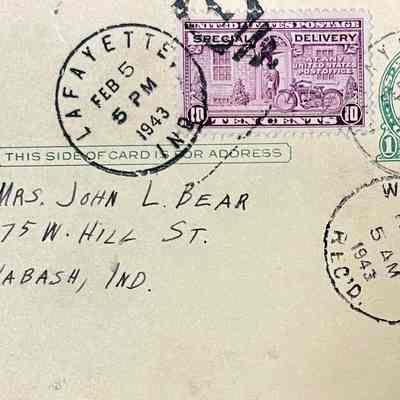 LAFAYETTE,
FEB 5
5 PM
1943
IND.
UNITED STATES POSTAGE
SPECIAL DELIVERY
AT ANY
UNITED STATES
POST OFFICE
10 TEN CENTS 10
1
THIS SIDE OF CARD IS FOR ADDRESS
MRS. JOHN L. BEAR
75 W. HILL ST.
WABASH, IND.
W
5 AM
1943
REC'D.